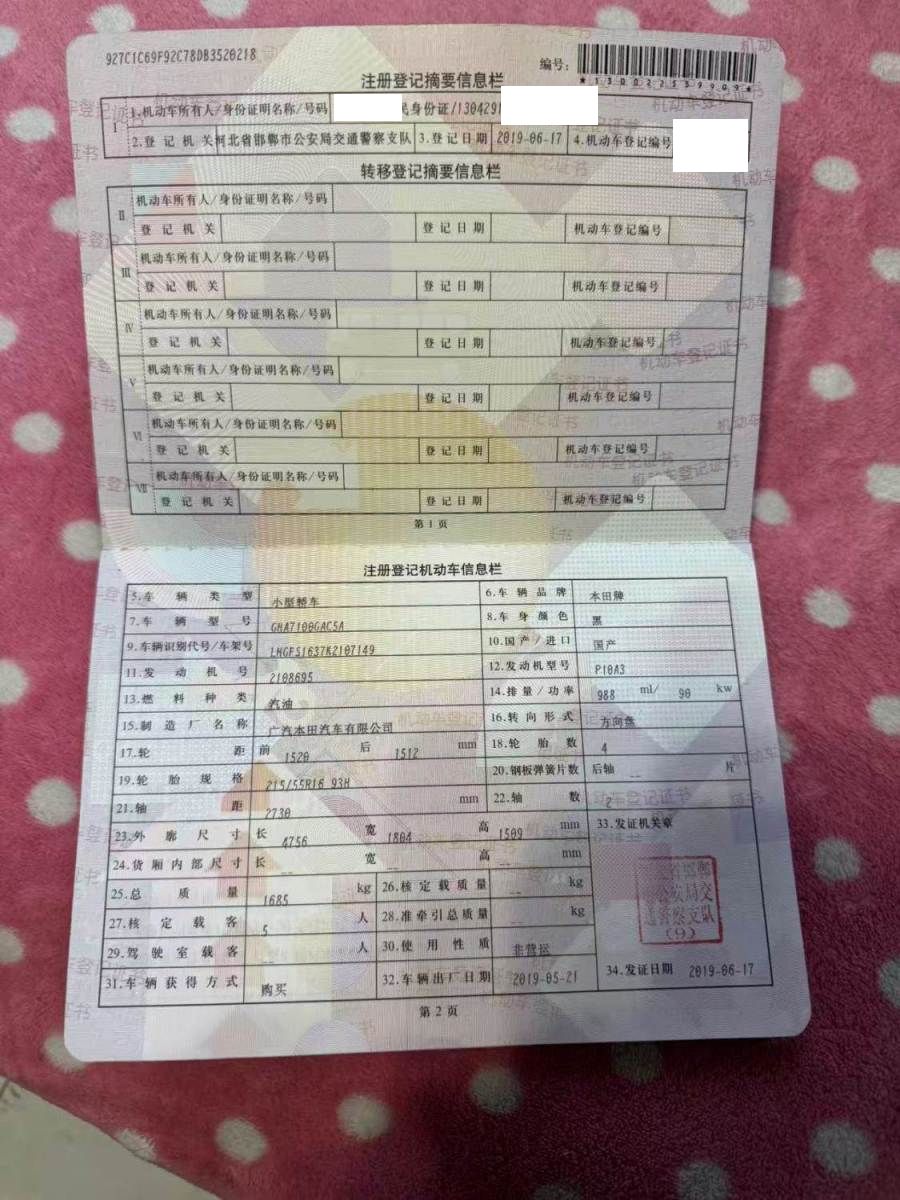 927C1C69F92C78DB3520218
编号:
*130022559909*
注册登记摘要信息栏
I 1.机动车所有人/身份证明名称/号码 民身份证/1304291
2.登记机关 河北省邯郸市公安局交通警察支队 3.登记日期 2019-06-17 4.机动车登记编号
转移登记摘要信息栏
II 机动车所有人/身份证明名称/号码
登记机关 登记日期 机动车登记编号
III 机动车所有人/身份证明名称/号码
登记机关 登记日期 机动车登记编号
IV 机动车所有人/身份证明名称/号码
登记机关 登记日期 机动车登记编号
V 机动车所有人/身份证明名称/号码
登记机关 登记日期 机动车登记编号
VI 机动车所有人/身份证明名称/号码
登记机关 登记日期 机动车登记编号
VII 机动车所有人/身份证明名称/号码
登记机关 登记日期 机动车登记编号
第1页
注册登记机动车信息栏
5.车辆类型 小型轿车 6.车辆品牌 本田牌
7.车辆型号 GHA7100GAC5A 8.车身颜色 黑
9.车辆识别代号/车架号 LHGFS1637K2107149 10.国产/进口 国产
11.发动机号 2108695 12.发动机型号 P10A3
13.燃料种类 汽油 14.排量/功率 988 ml/ 90 kw
15.制造厂名称 广汽本田汽车有限公司 16.转向形式 方向盘
17.轮距 前 1520 后 1512 mm 18.轮胎数 4
19.轮胎规格 215/55R16 93H 20.钢板弹簧片数 后轴 -- 片
21.轴距 2730 mm 22.轴数 2
23.外廓尺寸 长 4756 宽 1804 高 1509 mm 33.发证机关章
24.货厢内部尺寸 长 -- 宽 -- 高 -- mm
25.总质量 1685 kg 26.核定载质量 -- kg
27.核定载客 5 人 28.准牵引总质量 kg
29.驾驶室载客 人 30.使用性质 非营运
31.车辆获得方式 购买 32.车辆出厂日期 2019-05-21 34.发证日期 2019-06-17
第2页